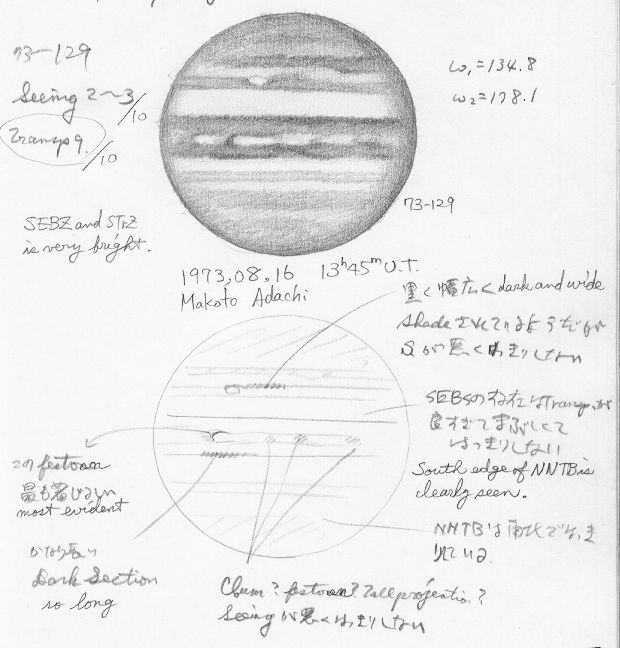 73-129
Seeing 2~3/10
Transp 9/10
ω₁=134.8
ω₂=178.1
SEBZ and STrZ
is very bright.
73-129
1973,08.16 13ʰ45ᵐ U.T.
Makoto Adachi
黒く幅広く dark and wide
shade されているようだが
Sが悪くはっきりしない
SEBsの存在はTransp.が
良すぎてまぶしくて
はっきりしない
South edge of NNTB is
clearly seen.
NNTBは
このfestoon
最も著しい
most evident
かなり長い
Dark Section
so long
festoon? projection?
Seeingが悪くはっきりしない